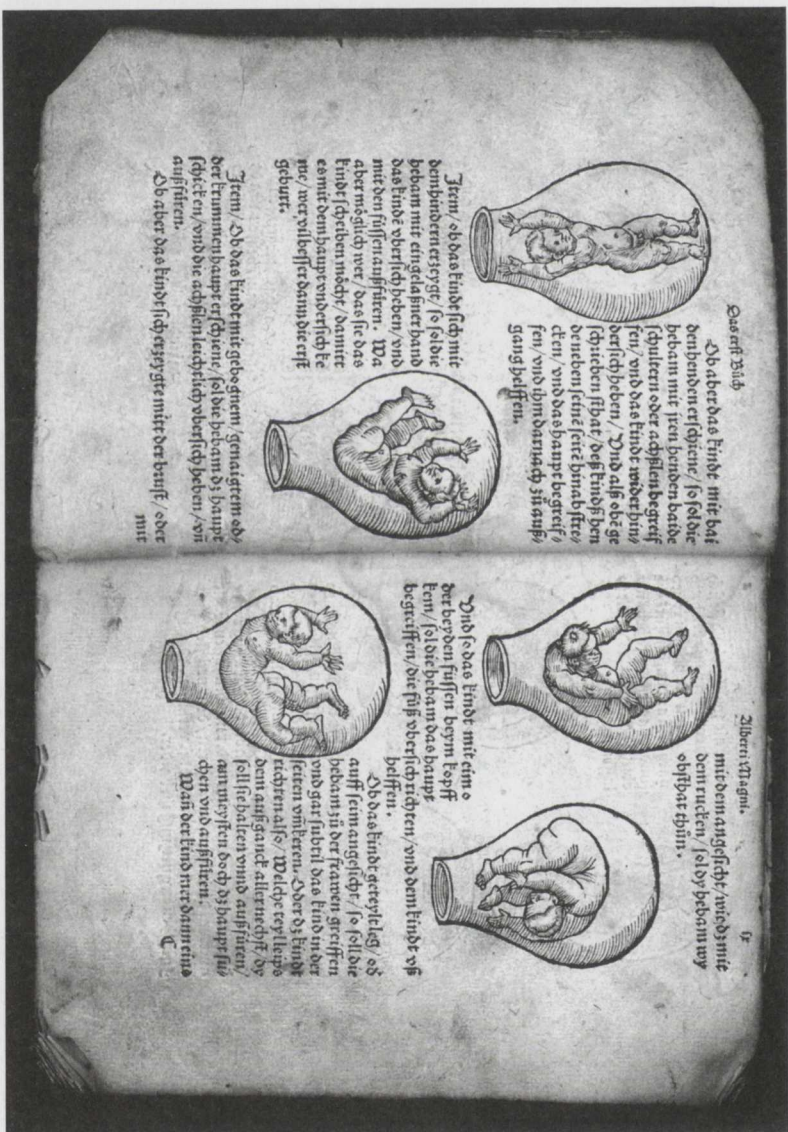 Das erst Bůch
Ob aber das kindt mit bai
den henden erschiene / so sol die
hebam mit jren henden baide
schultern oder achßlen begreif
fen / vnd das kindt wider hin⸗
dersich heben / Vnd alß obē ge
schrieben sthat / deß kindß hen
de neben seinē seitē hinab stre⸗
cken / vnd das haupt begreif⸗
fen / vnd ihm darnach zů auß⸗
gang helffen.
Item / ob das kindt sich mit
dem hindern erzeygt / so sol die
hebam mit eingelaßner hand
das kindē vbersich heben / vnd
mit den füssen außfüren. Wa
aber möglich wer / das sie das
kindt scheiben möcht / damitt
es mit dem haupt vndersich ke
me / wer vil besser dann die erst
geburt.
Item / Ob das kindt mit gebognem / genaigtem od⸗
der krummen haupt erschiene / sol die hebam dz haupt
schicken / vnd die achßlen leichtlich vbersich heben / vñ
außfüren.
Ob aber das kindt sich erzeygte mit der brust / oder
mit
Alberti Magni.
mit dem angesicht / wie dz mit
dem rucken / sol dy hebam wy
obsthat thůn.
Vnd so das kindt mit eim o
der beyden füssen beym kopff
kem / sol die hebam das haupt
begreiffen / die füß vbersich richten / vnd dem kindt vß
helffen.
Ob das kindt geteylt leg / od
auff seim angesicht / so soll die
hebam zů der frawen greiffen
vnd gar subtil das kind in der
seiten vm̃keren. Oder dz kindt
richten also / Welche teyl leibs
dem außganck aller nechst / dy
soll sie halten vnnd außfüren /
am meysten doch dz haupt sů⸗
chen vnd außfüren.
Wañ der kinder mer dann eins
C